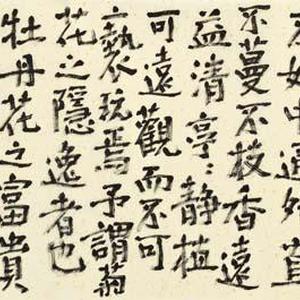 不妖中通外直
不蔓不枝香遠
益清亭〻静植
可遠觀而不可
褻玩焉予謂菊
花之隱逸者也
牡丹花之富貴